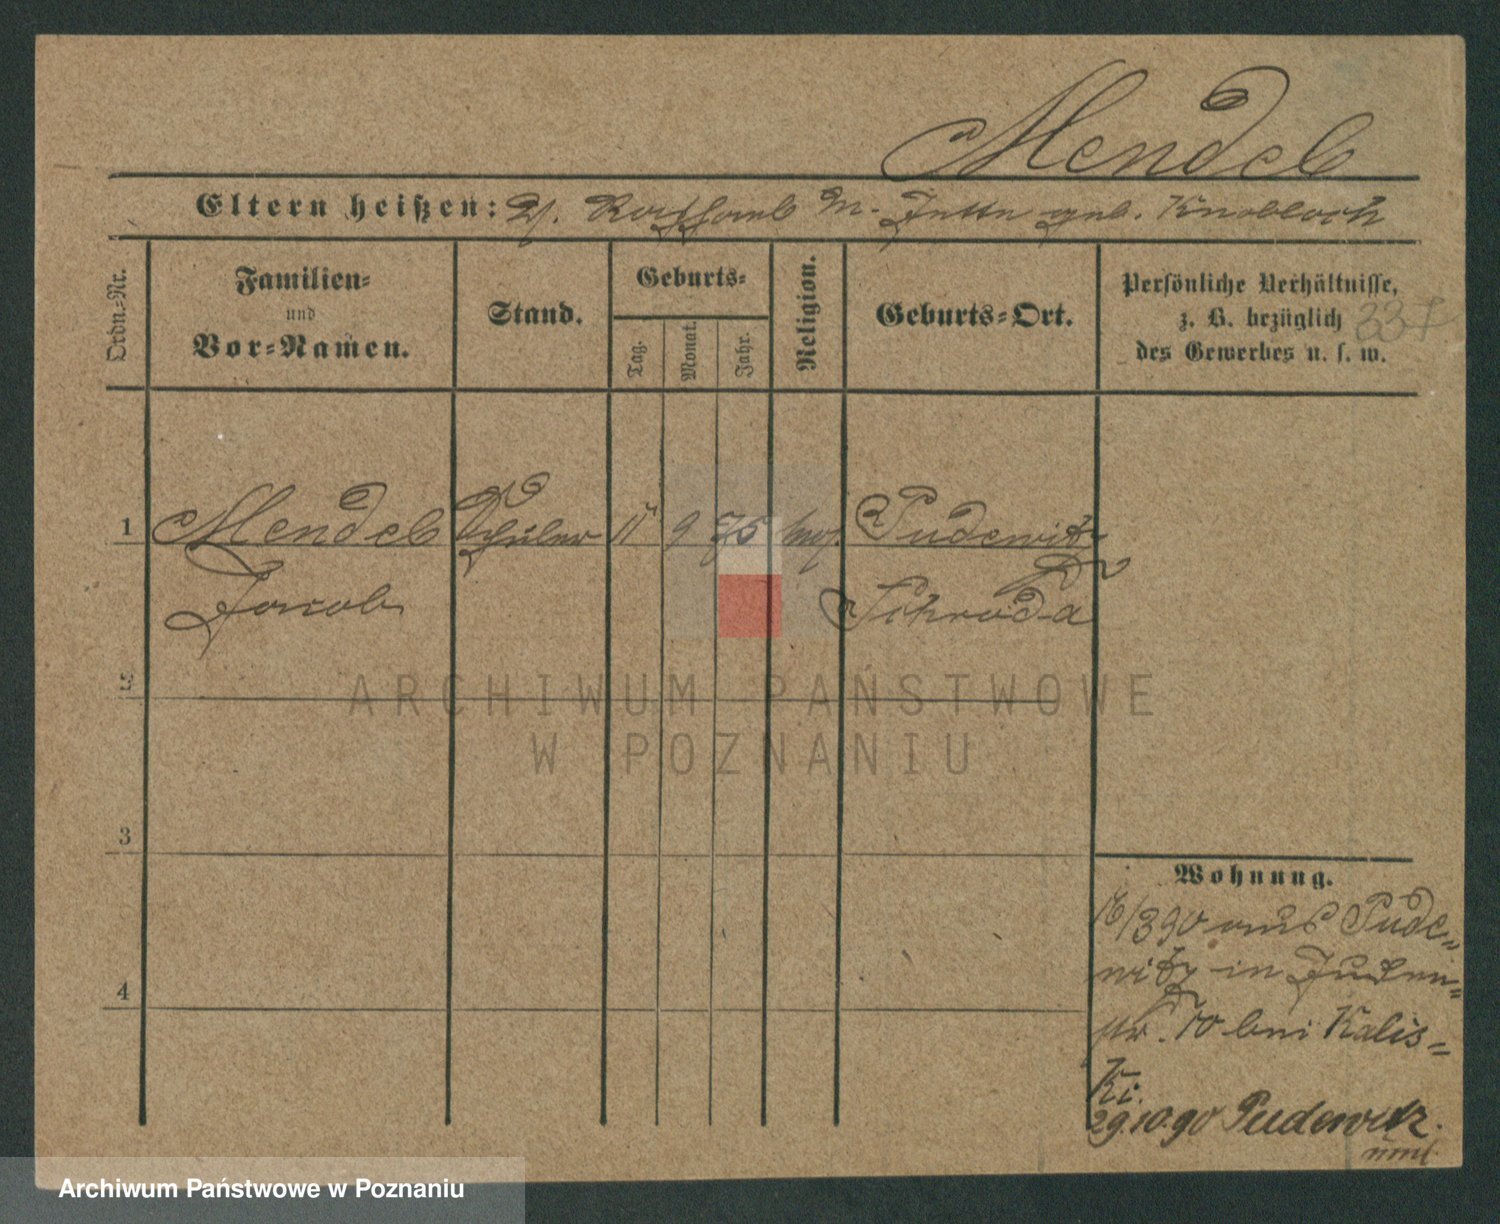 Mendel
Eltern heißen: V. Rosfsamb M. Jette geb. Knobloch
Ordn.-Nr.
Familien-
und
Vor-Namen.
Stand.
Geburts-
Tag.
Monat.
Jahr.
Religion.
Geburts-Ort.
Persönliche Verhältnisse,
z. B. bezüglich
des Gewerbes u. s. w.
337
1 Mendel Schüler 11 9 75 mos. Pudewitz
Jacob Schroda
2
ARCHIWUM PAŃSTWOWE
W POZNANIU
3
Wohnung.
16/3 90 aus Pude-
witz in Juden-
str. 10 bei Kalis-
ki.
29.10.90 Pudewitz.
4
Archiwum Państwowe w Poznaniu